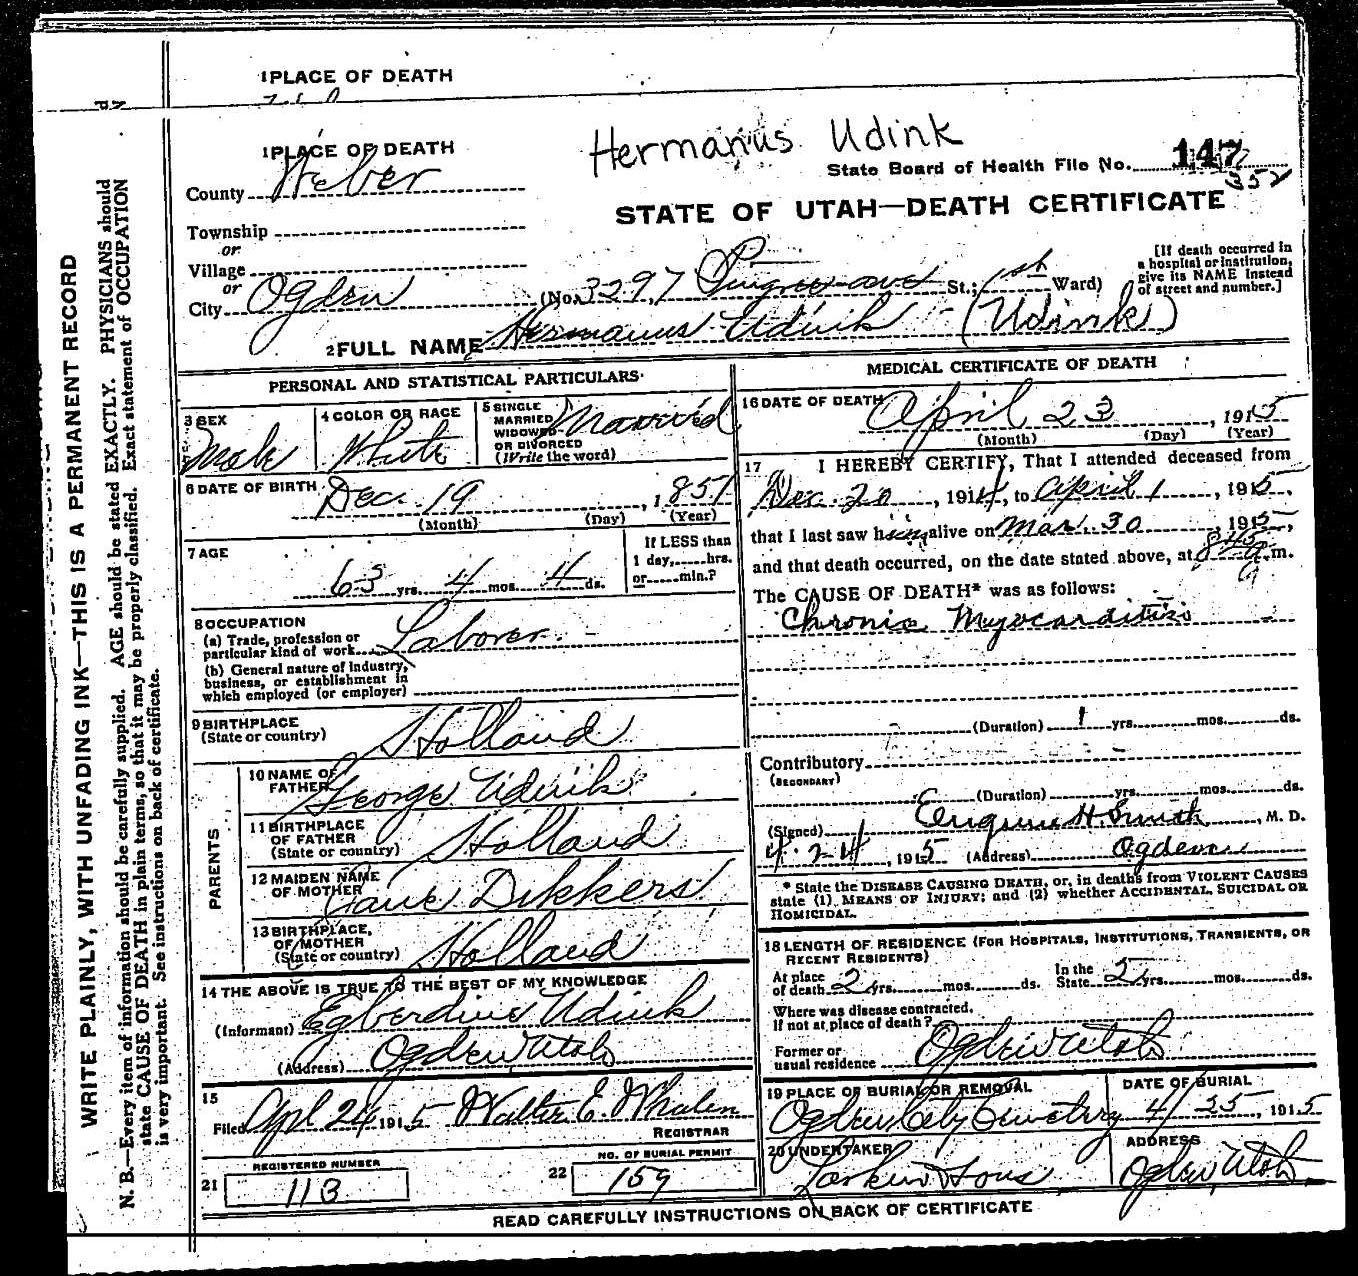 1PLACE OF DEATH
1PLACE OF DEATH
Hermanus Udink
County Weber
State Board of Health File No. 147
352
STATE OF UTAH—DEATH CERTIFICATE
Township
or
Village
or
City Ogden (No. 3297 Pingree ave St.; 1st Ward)
[If death occurred in
a hospital or institution,
give its NAME instead
of street and number.]
2FULL NAME Hermanus Udink (Udink)
PERSONAL AND STATISTICAL PARTICULARS
3 SEX
Male
4 COLOR OR RACE
White
5 SINGLE
MARRIED
WIDOWED
OR DIVORCED
(Write the word)
Married
6 DATE OF BIRTH
Dec. 19, 1851
(Month) (Day) (Year)
7 AGE
63 yrs. 4 mos. 4 ds.
If LESS than
1 day,......hrs.
or......min.?
8 OCCUPATION
(a) Trade, profession or
particular kind of work Laborer
(b) General nature of Industry,
business, or establishment in
which employed (or employer)
9 BIRTHPLACE
(State or country)
Holland
PARENTS
10 NAME OF
FATHER George Udink
11 BIRTHPLACE
OF FATHER
(State or country)
Holland
12 MAIDEN NAME
OF MOTHER Jane Dikkers
13 BIRTHPLACE,
OF MOTHER
(State or country)
Holland
14 THE ABOVE IS TRUE TO THE BEST OF MY KNOWLEDGE
(Informant) Egberdine Udink
(Address) Ogden Utah
15
Filed Apl 24 1915 Walter E. Whalen
REGISTRAR
REGISTERED NUMBER
21 113
NO. OF BURIAL PERMIT
22 159
MEDICAL CERTIFICATE OF DEATH
16 DATE OF DEATH
April 23, 1915
(Month) (Day) (Year)
17 I HEREBY CERTIFY, That I attended deceased from
Dec. 20, 1914, to April 1, 1915,
that I last saw him alive on Mar. 30, 1915,
and that death occurred, on the date stated above, at 845 a.m.
The CAUSE OF DEATH* was as follows:
Chronic Myocarditis
(Duration) 1 yrs. mos. ds.
Contributory
(SECONDARY)
(Duration) yrs. mos. ds.
(Signed) Eugene H. Smith, M. D.
4-24, 1915 (Address) Ogden
* State the DISEASE CAUSING DEATH, or, in deaths from VIOLENT CAUSES
state (1) MEANS OF INJURY; and (2) whether ACCIDENTAL, SUICIDAL OR
HOMICIDAL.
18 LENGTH OF RESIDENCE (FOR HOSPITALS, INSTITUTIONS, TRANSIENTS, OR
RECENT RESIDENTS)
At place
of death 2 yrs. mos. ds.
In the
State 5 yrs. mos. ds.
Where was disease contracted,
If not at place of death?
Former or
usual residence Ogden Utah
19 PLACE OF BURIAL OR REMOVAL
Ogden City Cemetery
DATE OF BURIAL
4/25, 1915
20 UNDERTAKER
Larkin Sons
ADDRESS
Ogden, Utah
READ CAREFULLY INSTRUCTIONS ON BACK OF CERTIFICATE
WRITE PLAINLY, WITH UNFADING INK—THIS IS A PERMANENT RECORD
N. B.—Every item of information should be carefully supplied. AGE should be stated EXACTLY. PHYSICIANS should
state CAUSE OF DEATH in plain terms, so that it may be properly classified. Exact statement of OCCUPATION
is very important. See instructions on back of certificate.